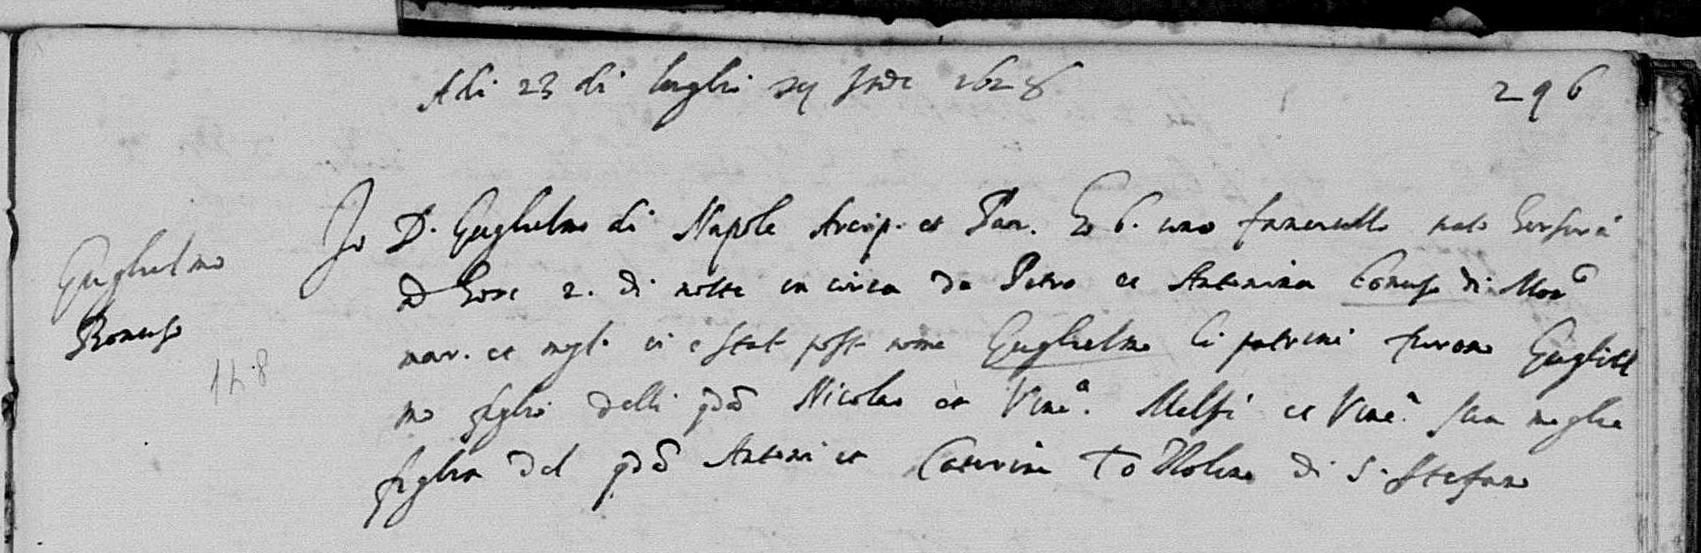 Adi 23 di luglio XI Ind. 1628
296
Guglielmo
Romuso
148
Io D. Guglielmo di Napole Arcip. et Par. ho b. uno fanciullo nato hersira
ad hore 2. di notte in circa da Petro et Antonina Comuso di Mor.
mar. et mogl. ci e stat posto nome Guglielmo li patrini furono Gugliel
mo figlio delli qdd Nicolao et Vinc.a Melfi et Vinc.a sua moglie
figlia del qdd Antoni et Caterina di S. Stefano